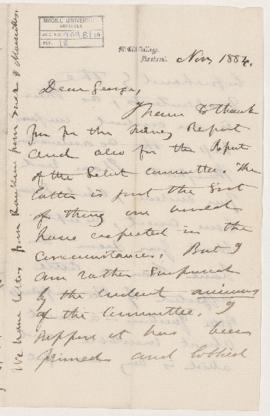 McGILL UNIVERSITY
ARCHIVES
ACC. NO. 909B/14
REF. 18
McGill College,
Montreal. Nov 1884.
Dear George,
I have to thank
you for the Survey Report
and also for the Report
of the Select Committee. The
latter is just the sort
of thing one would
have expected in the
circumstances. But I
am rather surprised
by the evident animus
of the Committee. I
suppose it has been
primed and lobbied
We have letters from Rankine from